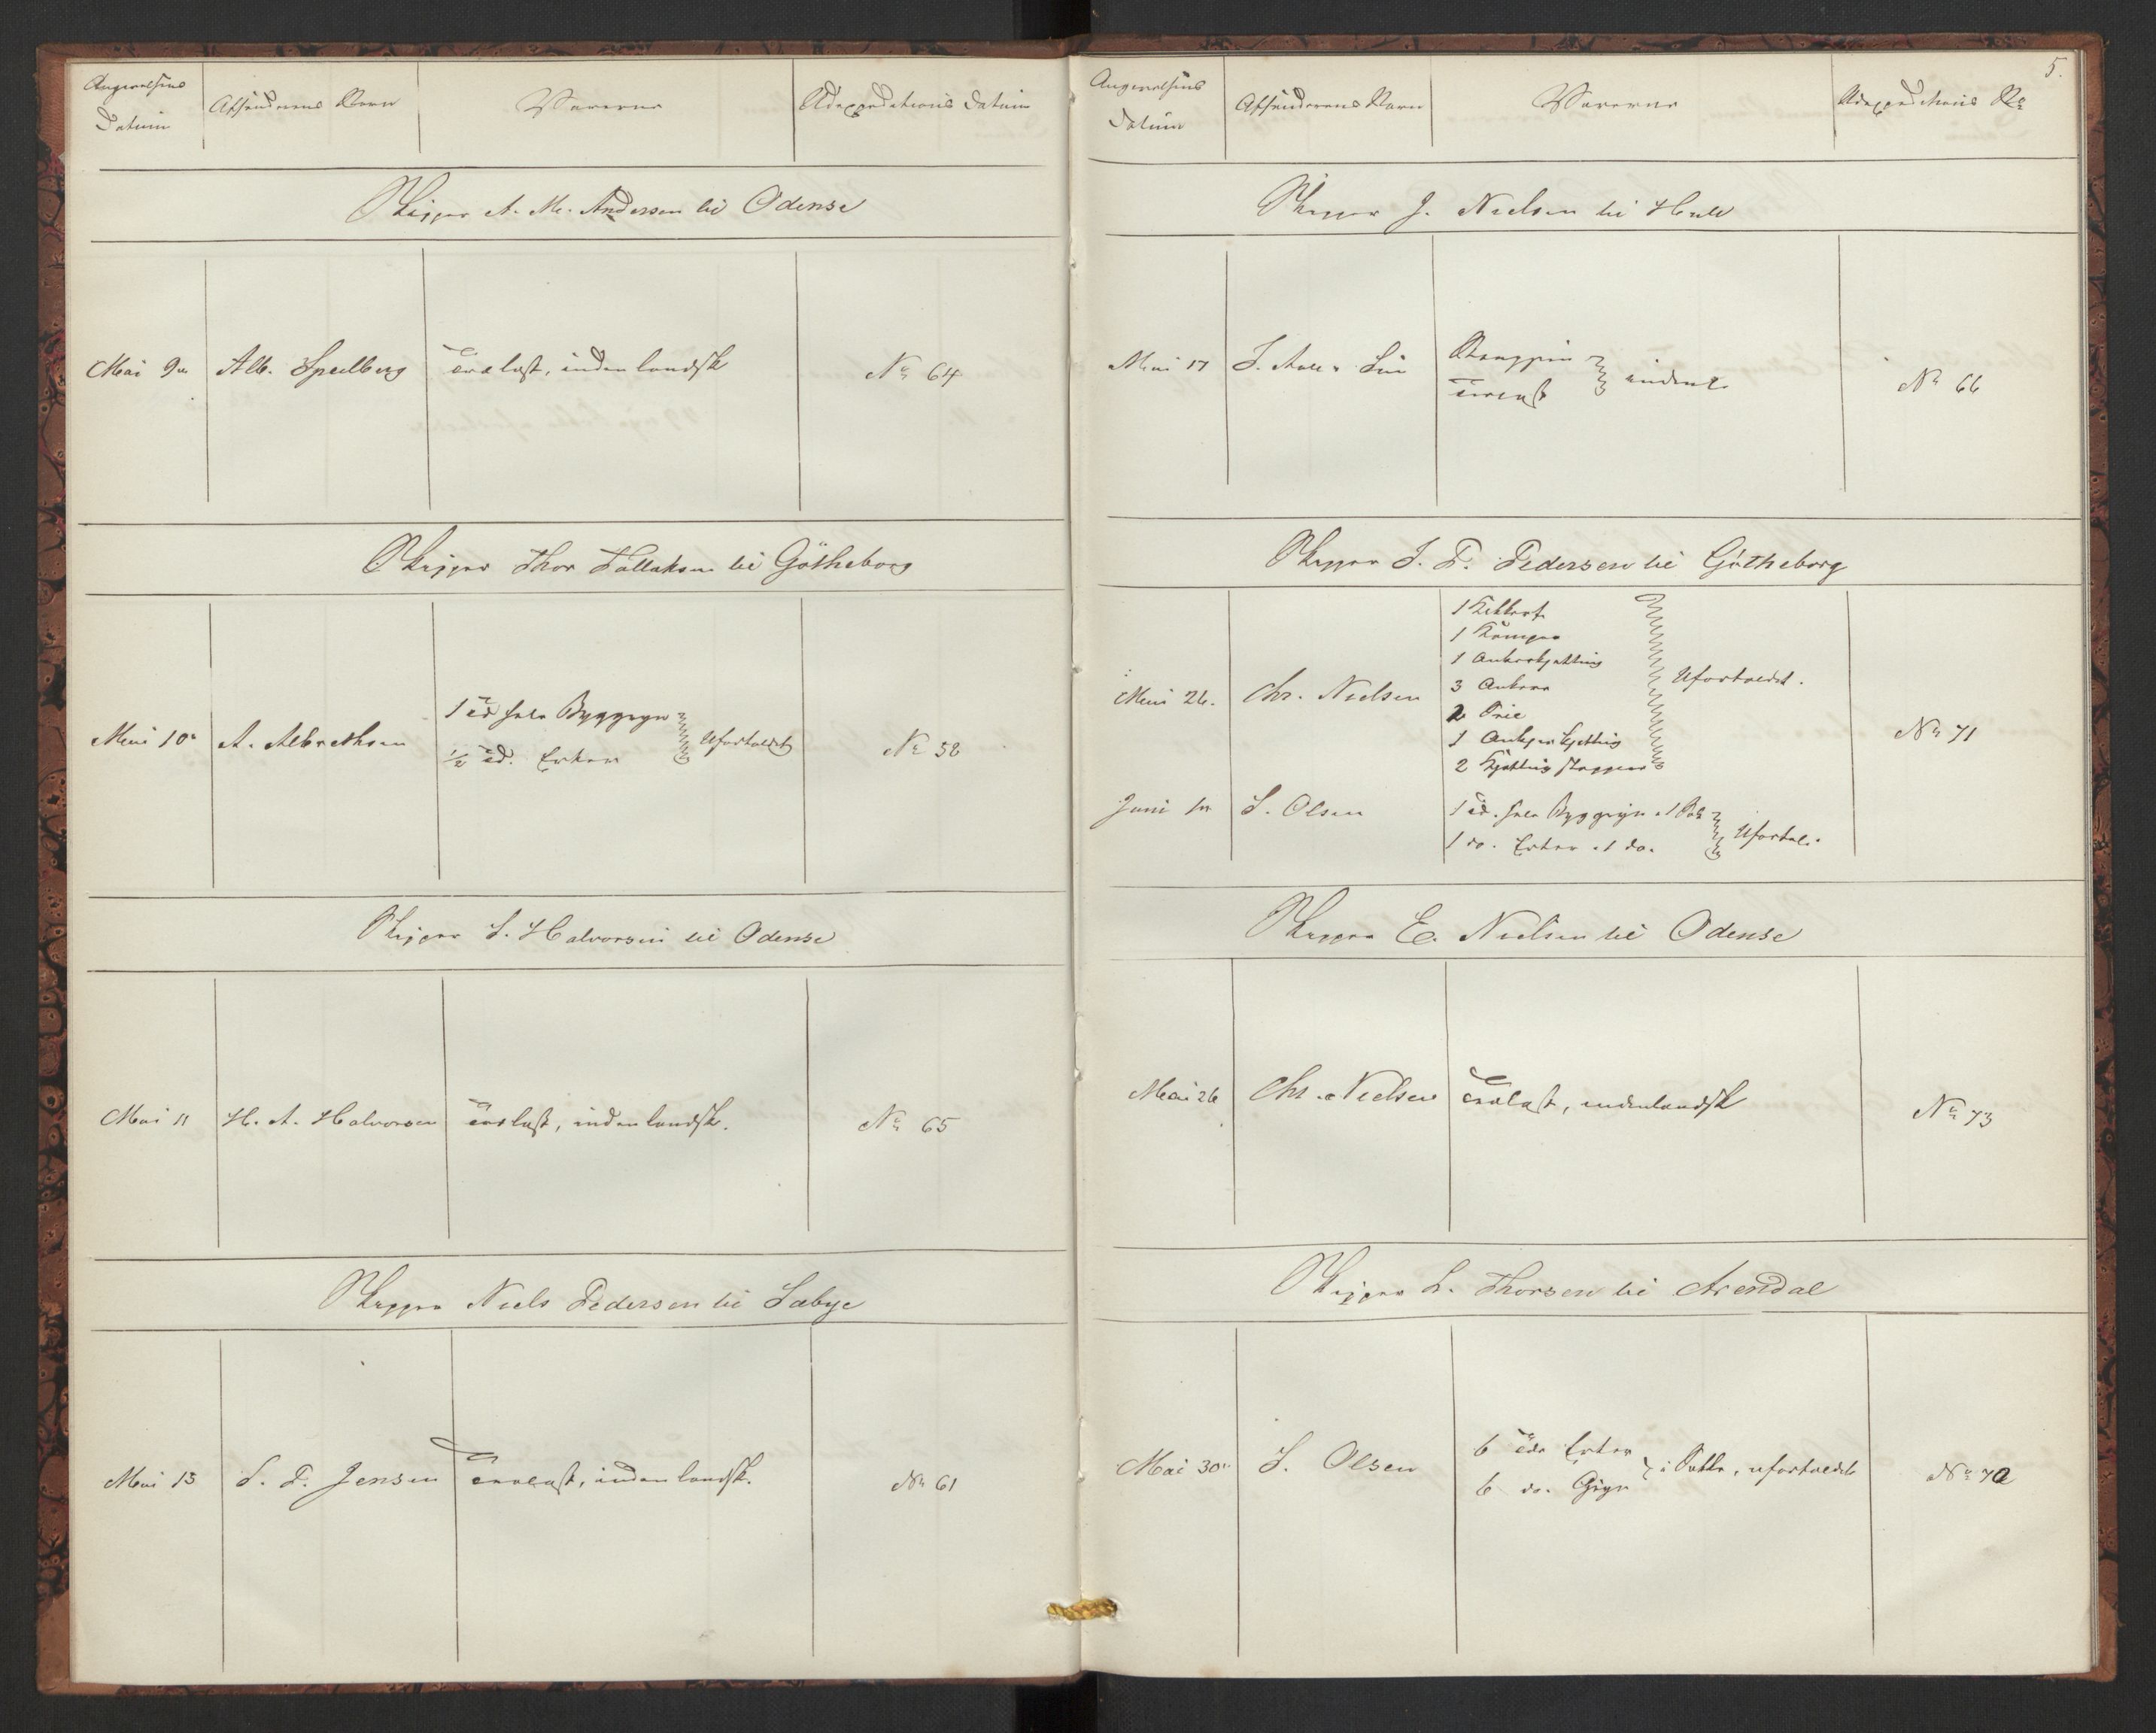 Angivelsens Datum
Afsenderens Navn
Varerne
Udexpeditions Datum
Skipper A. M. Andersen til Odense
Mai 9
Alb. Spedberg
Trælast, indenlandsk
No 64
Skipper Thor Tallaksen til Götheborg
Mai 10
A. Albrethsen
1 Td hele Byggryn
½ Td. Erter
Ufortoldet
No 58
Skipper S. Halvorsen til Odense
Mai 11
H. A. Halvorsen
Trælast, indenlandsk.
No 65
Skipper Niels Pedersen til Sæbye
Mai 13
S. P. Jensen
Trælast, indenlandsk.
No 61
5.
Angivelsens Datum
Afsenderens Navn
Varerne
Udexpeditions No
Skipper J. Nielsen til Hull
Mai 17
Trælast
No 66
Skipper J. P. Pedersen til Götheborg
Mai 26.
Chr. Nielsen
1
1
1 Ankerkjætting
3 Ankere
2
1
2 Kjætting
Ufortoldet.
No 71
Juni 1
S. Olsen
1 Td. hele Byggryn
1 do. Erter
Ufortol.
Skipper E. Nielsen til Odense
Mai 26
Chr. Nielsen
Trælast, indenlandsk
No 73
Skipper L. Thorsen til Arendal
Mai 30
S. Olsen
6 Tdr Erter
6 do. Gryn
i Sække, ufortoldet
No 70